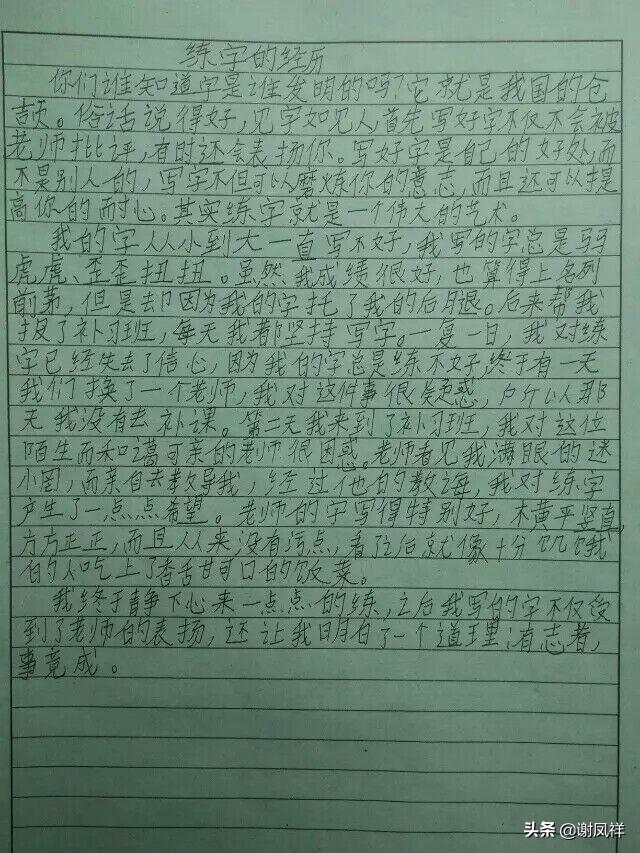 练字的经历
你们谁知道字是谁发明的吗?它就是我国的仓
颉。俗话说得好,见字如见人,首先写好字不仅不会被
老师批评,有时还会表扬你。写好字是自己的好处,而
不是别人的,写字不但可以磨炼你的意志,而且还可以提
高你的耐心。其实练字就是一个伟大的艺术。
我的字从小到大一直写不好,我写的字总是马马
虎虎、歪歪扭扭。虽然我成绩很好,也算得上名列
前茅,但是却因为我的字托了我的后腿。后来帮我
报了补习班,每天我都坚持写字。一复一日,我对练
字已经失去了信心,因为我的字总是练不好,终于有一天
我们换了一个老师,我对这件事很疑惑,所以那
天我没有去补课。第二天我来到了补习班,我对这位
陌生而和蔼可亲的老师很困惑。老师看见我满眼的迷
小困,而亲自去教导我,经过他的教诲,我对练字
产生了一点点希望。老师的字写得特别好,木黄平竖真,
方方正正,而且从来没有污点,看了后就像十分饥饿
的人吃上了香舌甘可口的饭菜。
我终于静下心来一点点的练,之后我写的字不仅受
到了老师的表扬,还让我明白了一个道理:有志者,
事竟成。
头条 @谢凤祥